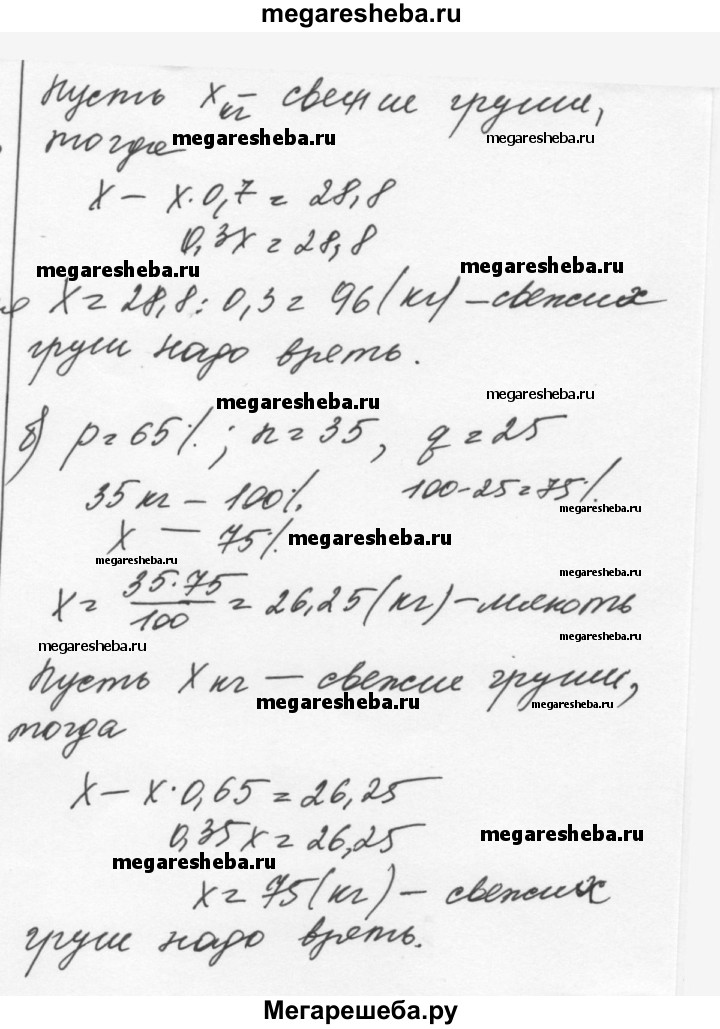 megaresheba.ru
Пусть x кг – свежие груши,
тогда megaresheba.ru megaresheba.ru
x – x·0,7 = 28,8
0,3x = 28,8
megaresheba.ru megaresheba.ru
x = 28,8 : 0,3 = 96 (кг) – свежих
груш надо взять.
megaresheba.ru megaresheba.ru
б) p = 65%; n = 35, q = 25
35 кг – 100% 100-25=75%
megaresheba.ru
x – 75% megaresheba.ru
megaresheba.ru megaresheba.ru
x = 35·75/100 = 26,25 (кг) – мякоть
megaresheba.ru megaresheba.ru
Пусть x кг – свежие груши,
megaresheba.ru megaresheba.ru
тогда
x – x·0,65 = 26,25
0,35x = 26,25 megaresheba.ru
megaresheba.ru
x = 75 (кг) – свежих
груш надо взять.
Мегарешеба.ру